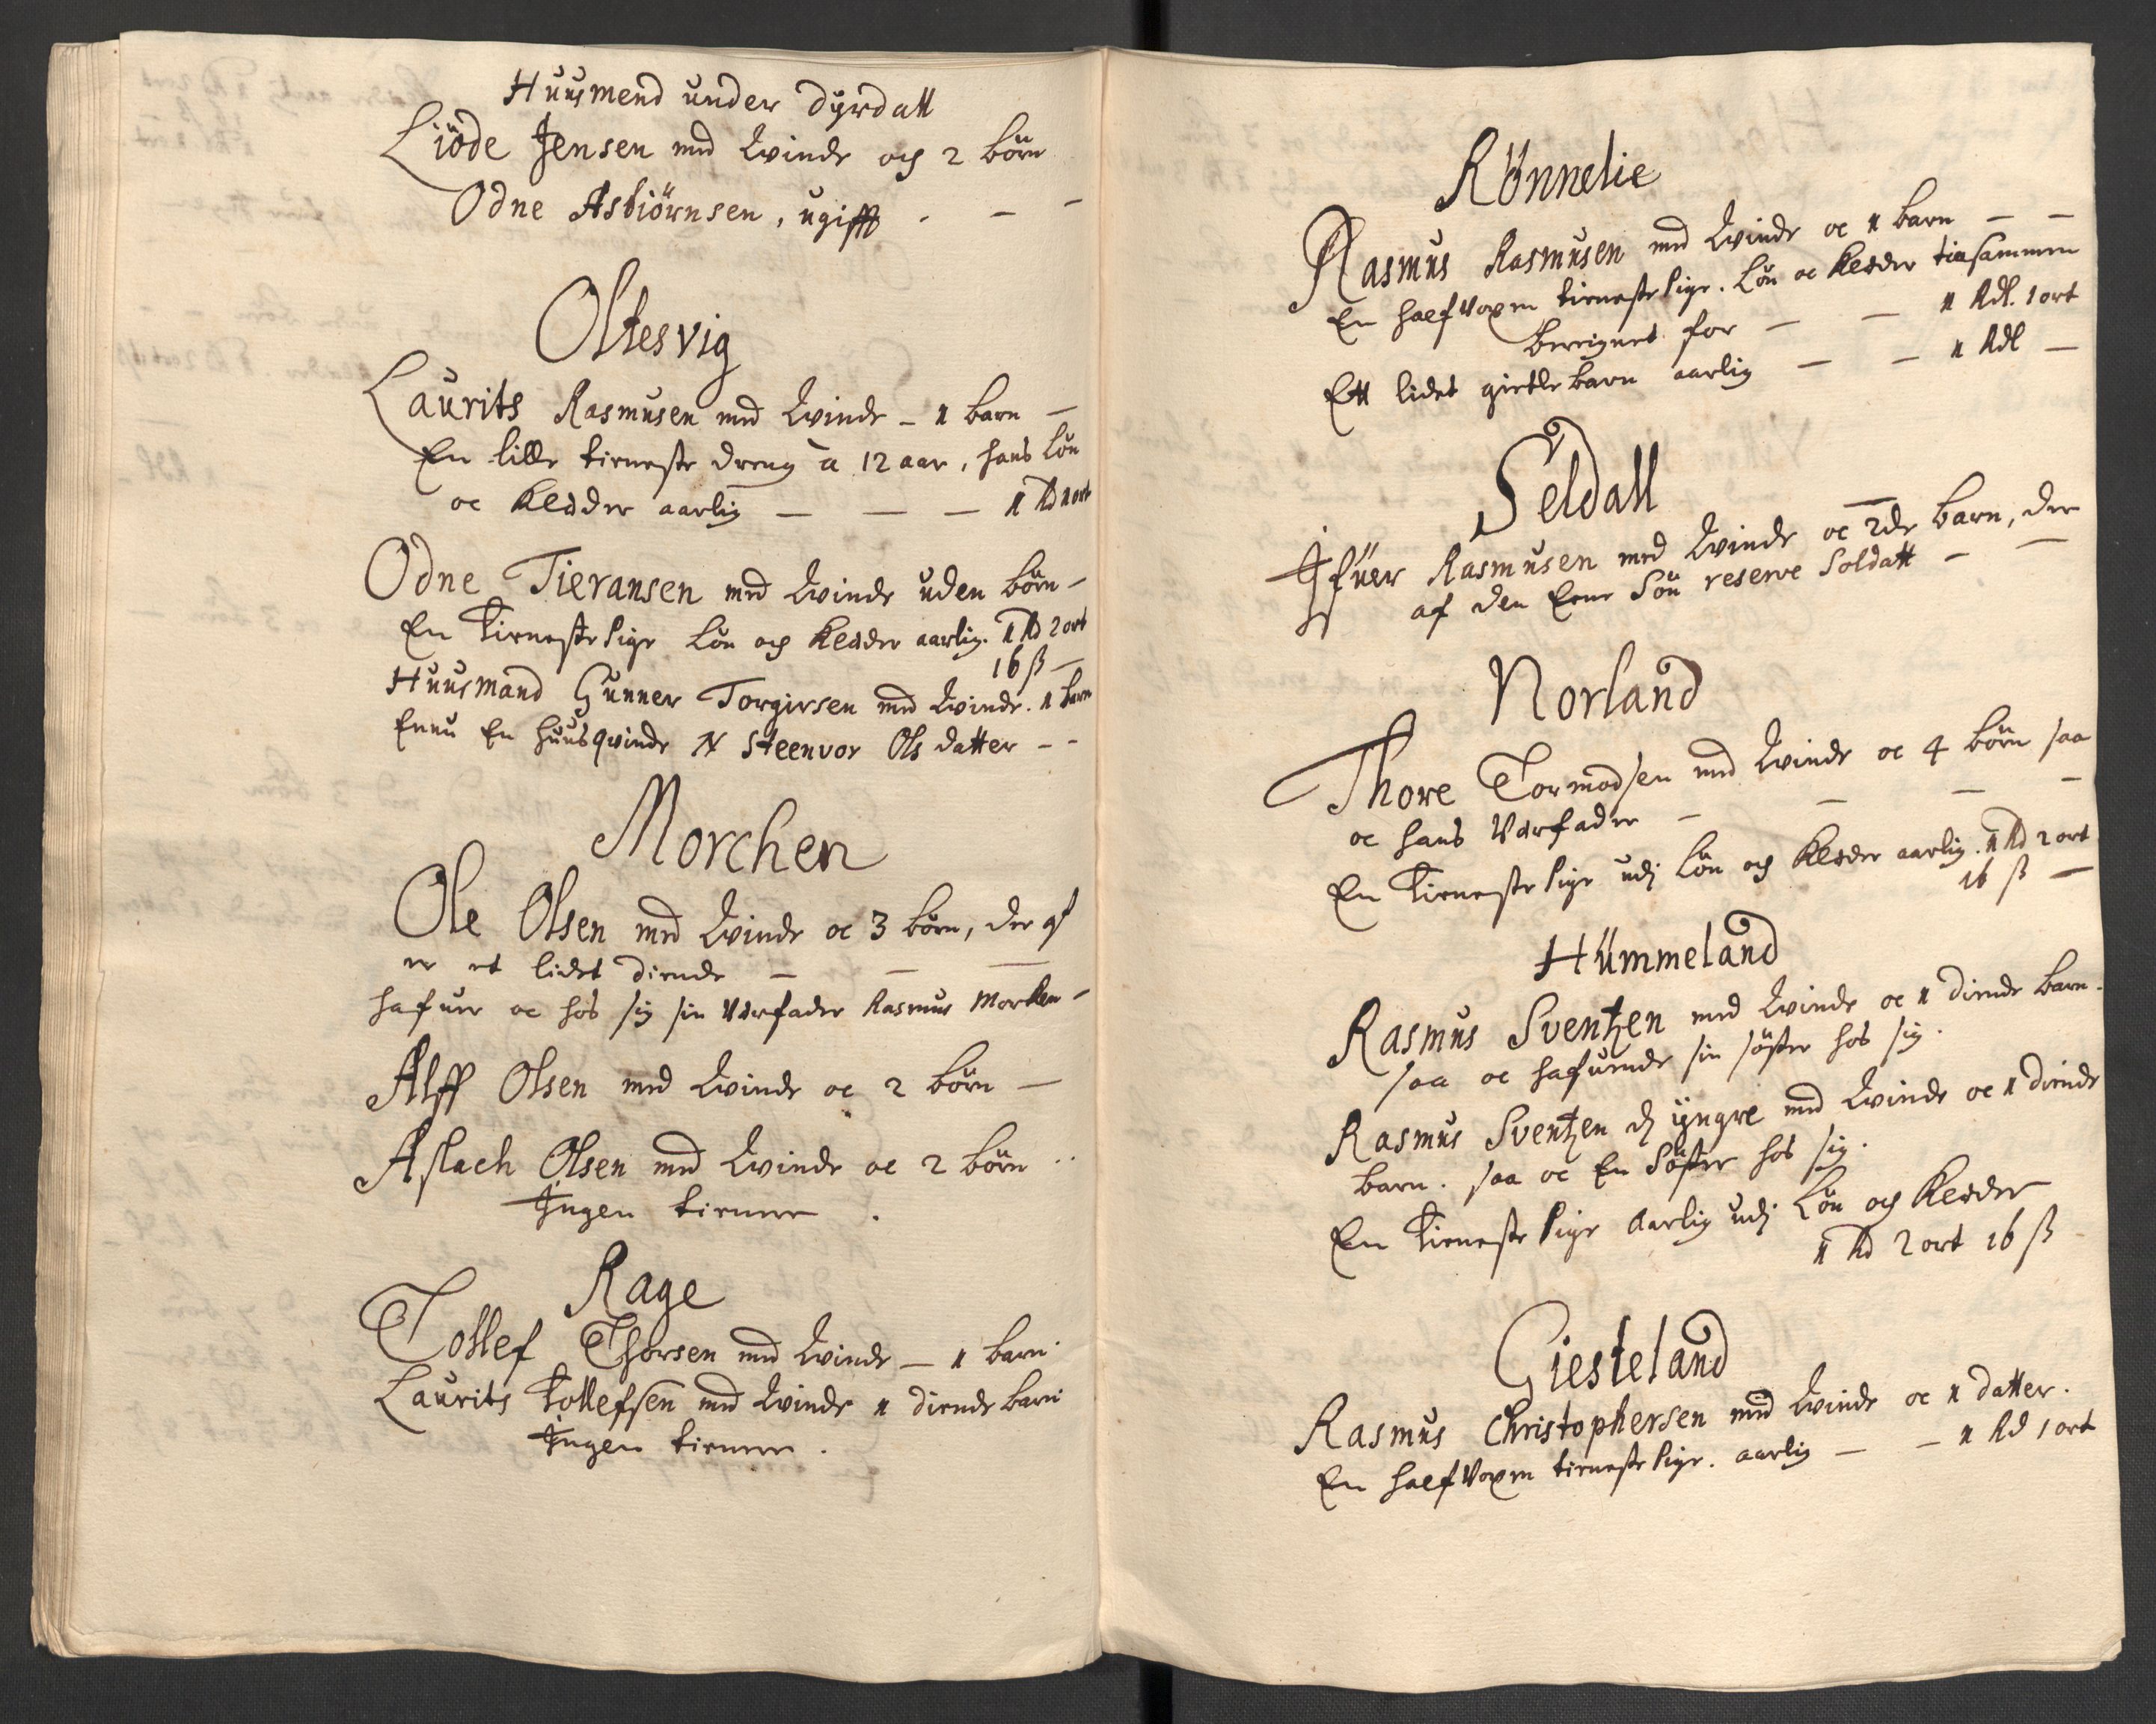 Huusmend under Dyrdall
Liöde Jensen med Qvinde och 2 börn
Odne Asbiörnsen, ugifft . - -
Oltesvig
Laurits Rasmusen med Qvinde - 1 barn -
En lille tieneste dreng a 12 aar, hans Lön
oc Klæder aarlig - - - 1 Rd 1 ort
Odne Tieransen med Qvinde uden börn -
En Tieneste pige Lön och Klæder aarlig. 1 Rd 2 ort
16 ß -
Huusmand Gunner Torgiersen med Qvinde. 1 barn
Ennu En huusqvinde N Steenvor Olsdatter - -
Morchen
Ole Olsen med Qvinde oc 3 börn, der af
er et lidet diende - - -
hafuer oc hos sig sin Værfader Rasmus Morken -
Alff Olsen med Qvinde oc 2 börn -
Aslach Olsen med Qvinde oc 2 börn ..
Ingen tienere .
Rage
Tollef Thorsen med Qvinde - 1 barn.
Laurits Tollefsen med Qvinde 1 diende barn
Ingen tienere .
Rönnelie
Rasmus Rasmusen med Qvinde oc 1 barn - -
En half Voxen tieneste pige. Lön oc Klæder tilsammen
bereignet for - - 1 Rdl. 1 ort
Ett lidet giætle barn aarlig - - 1 Rdl -
Seldall
Ifuer Rasmusen med Qvinde oc 2de barn, der
af den Eene Sön reserve Soldatt - -
Norland
Thore Tormodsen med Qvinde oc 4 börn saa
oc hans Værfader - - - -
En Tieneste pige udj Lön och Klæder aarlig. 1 Rd 2 ort
16 ß -
Hümmeland
Rasmus Sventzen med Qvinde oc 1 diende barn.
saa oc hafuende sin söster hos sig.
Rasmus Sventzen dj yngre med Qvinde oc 1 diende
barn. saa oc En Söster hos sig.
En Tieneste pige aarlig udj Lön och Klæder
1 Rd 2 ort 16 ß
Giesteland
Rasmus Christophersen med Qvinde oc 1 datter.
En half Voxen tieneste pige. aarlig - - 1 Rd 1 ort